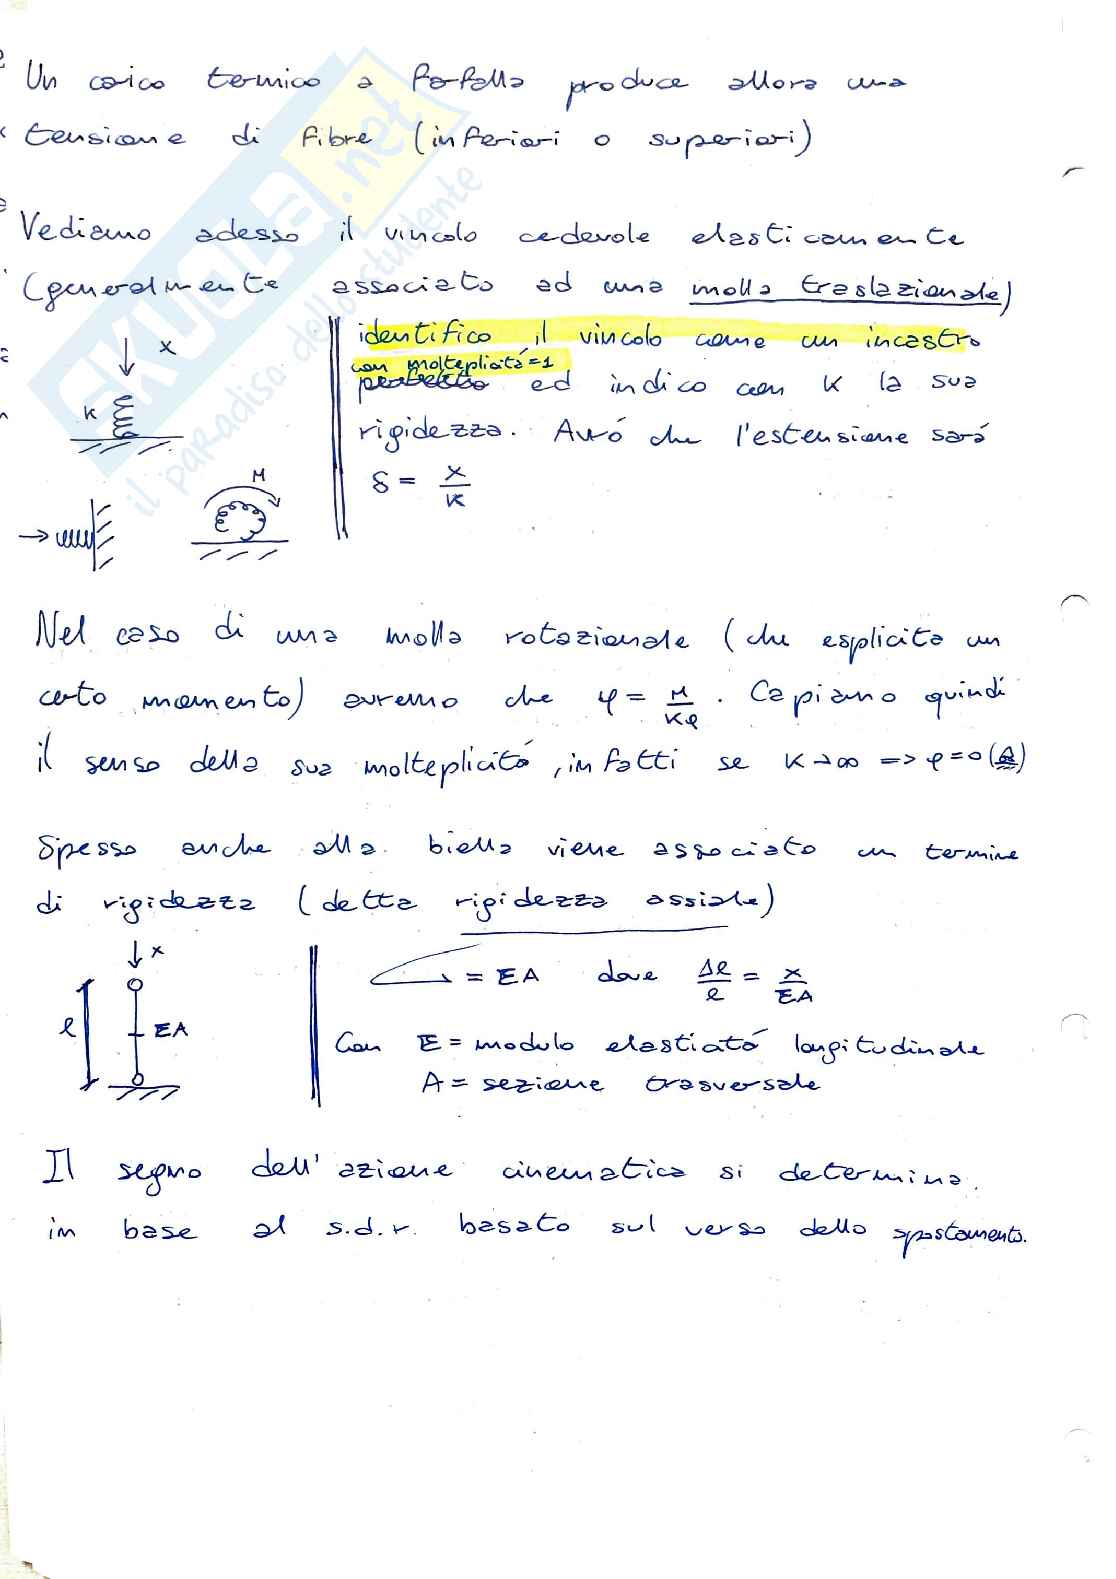 Un carico termico a farfalla produce allora una
tensione di fibre (inferiori o superiori)
Vediamo adesso il vincolo cedevole elasticamente
(generalmente associato ad una molla traslazionale)
identifico il vincolo come un incastro
con molteplicitá=1
perfetto ed indico con K la sua
rigidezza. Avró che l'estensione sará
δ = x/K
x
K
M
Nel caso di una molla rotazionale (che esplicita un
certo momento) avremo che φ = M/Kφ. Capiamo quindi
il senso della sua molteplicitá, infatti se K→∞ => φ=0
Spesso anche alla biella viene associato un termine
di rigidezza (detta rigidezza assiale)
x
l
EA
= EA dove Δl/l = x/EA
Con E = modulo elasticitá longitudinale
A = sezione trasversale
Il segno dell'azione cinematica si determina
in base al s.d.r. basato sul verso dello spostamento.
SKUOLA.net
il paradiso dello studente